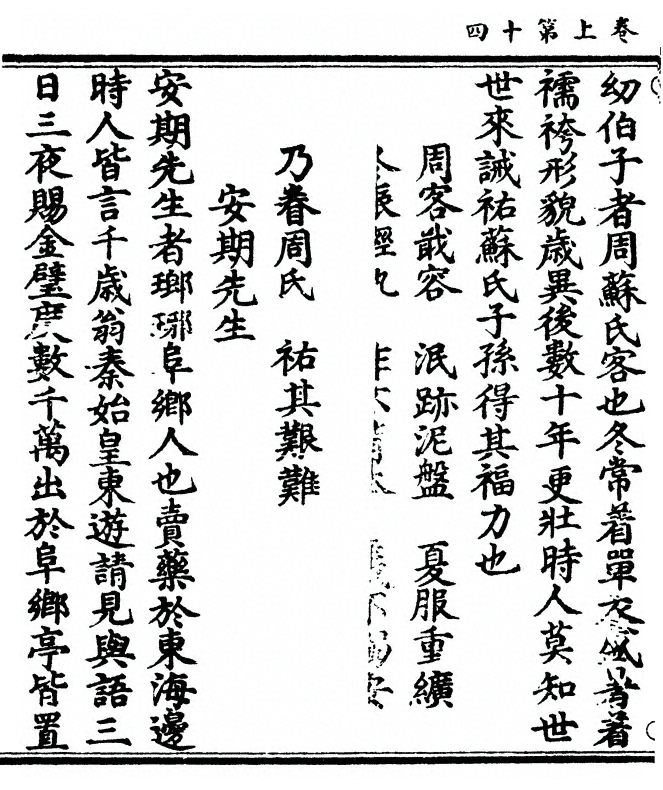 卷上第十四
幼伯子者周蘇氏客也冬常着單衣盛暑着
襦袴形貌歲異後數十年更壯時人莫知世
世來誡祐蘇氏子孫得其福力也
周客戢容　泯跡泥盤　夏服重纊
乃眷周氏　祐其艱難
安期先生
安期先生者瑯琊阜鄉人也賣藥於東海邊
時人皆言千歲翁秦始皇東遊請見與語三
日三夜賜金璧度數千萬出於阜鄉亭皆置